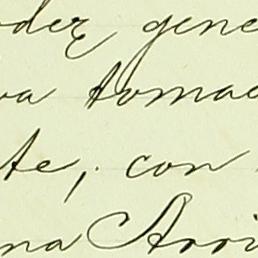 oder gene
va tomad
te, con
na Arri